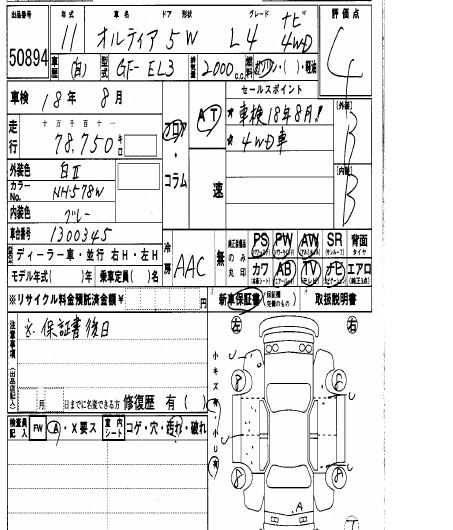 出品番号 年式 車名 ドア 形状 グレード 評価点
50894 11 オルティア 5W L4 ナビ 4WD 4
車歴 (自) 型式 GF-EL3 排気量 2000c.c. 燃料 ガソリン・( )・軽油
車検 18年 8月
セールスポイント
★車検18年8月!
★4WD車
走行 十万千百十一
78,750 キロ
フロア・コラム
AT 速
[外装] B
[内装] B
外装色 白II
カラーNo. NH-578W
内装色 グレー
車台番号 1300345
ディーラー車・並行 右H・左H
モデル年式( )年 乗車定員( )名
冷房 AAC
無 純正装備品のみ丸印
PS PW AW SR 背面
(サンルーフ) タイヤ
カワ AB TV ナビ エアロ
※リサイクル料金預託済金額 ¥ 円
新車保証書 (保証継続可能のもの) 取扱説明書
注意事項 (出品店記入)
※保証書後日
月 日までに名変できる方 修復歴 有( )
検査員記入 FW A・X要ス 室内シート コゲ・穴・汚れ・破れ
左 右
小キズ有・小U有
U U
A